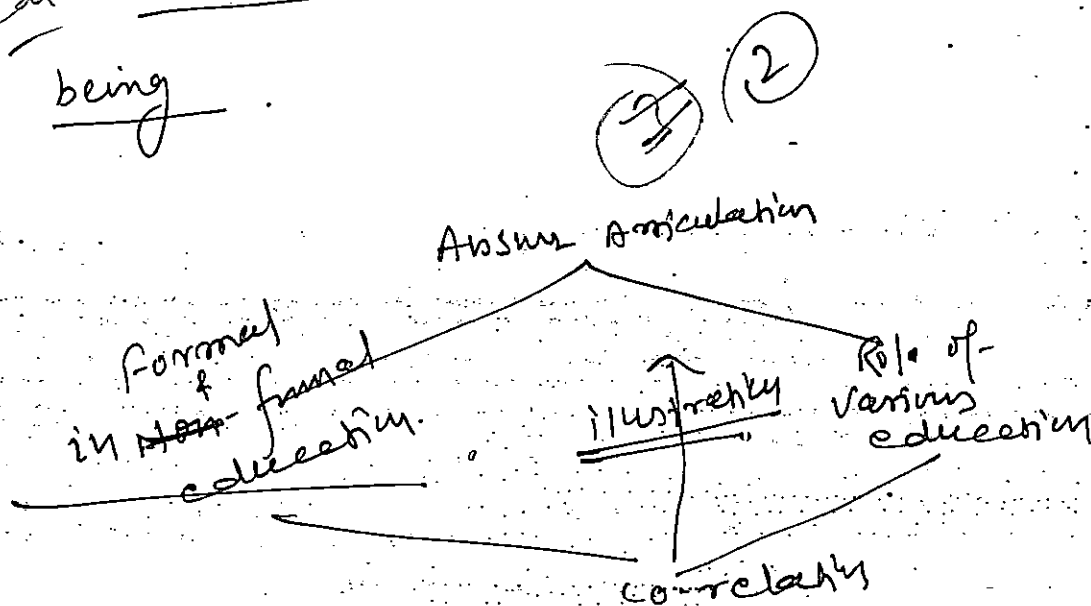 being
2
Articulation
Formal
&
in - formal
education.
illustration
Role of
various
education
co-relation